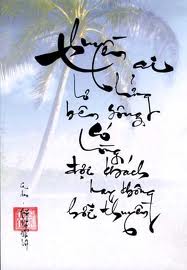 Thuyền ai
lơ lửng
bên sông
Có
lòng
đợi khách
hay không
hỡi thuyền
Ca dao